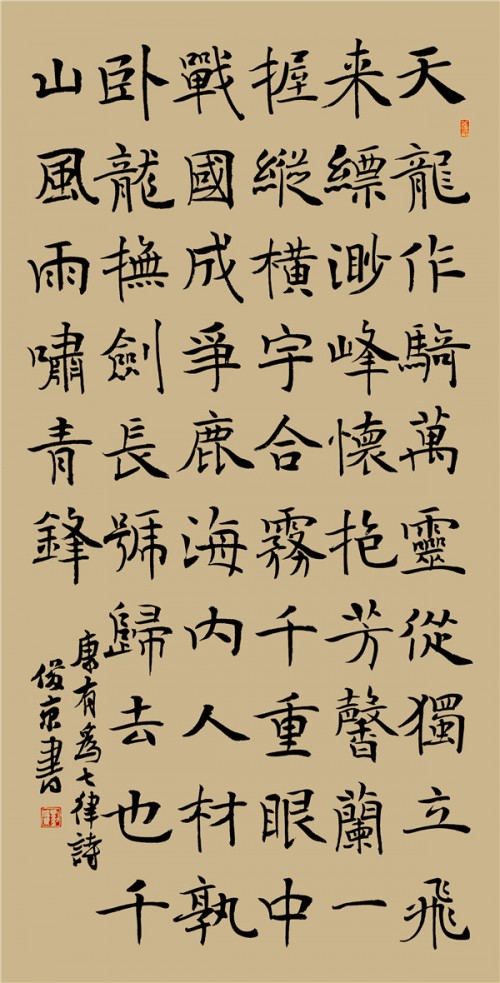 天龍作騎萬靈從獨立飛
来縹渺峰懷抱芳馨蘭一
握縱橫宇合霧千重眼中
戰國成爭鹿海内人材孰
卧龍撫劍長號歸去也千
山風雨嘯青鋒
康有為七律詩
俊京書